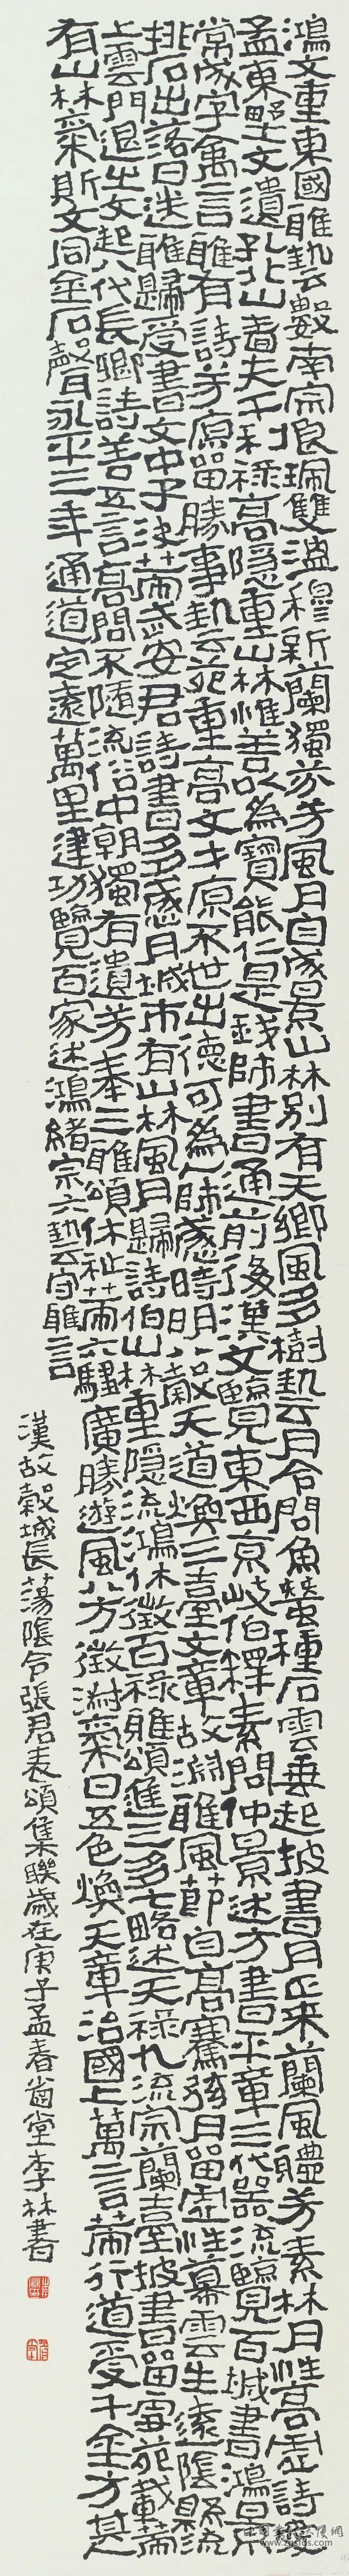 鴻文重東國雅藝數南宗 珮雙溫 新蘭獨 芳風月自成景山林別有天鄉風多樹藝雲月令問魚蠶種石雲垂起披書月正来蘭風體芳素林月性高虛詩
孟東野文遺孔北山 夫千利祿高隱重山林惟善以為寶能仁是我師書通前後漢文覽東西京岐伯釋素問仲景述方書平章三代器流覽百城書鴻景
常成字萬言雅有詩芳原留勝事藝苑重高文才原不世出德可為人師感時明八節天道煥三臺文章故淵雅風節自高騫弦月留虛性幕雲生遠陰縣流
排石出落日送雅歸受書文中子決策武安君詩書多感月城市有山林風月歸詩伯山林重隱流鴻休徵百祿雅頌進三多七略述天祿九流宗蘭臺披書留 苑載筆
上雲門退之文起八代長卿詩善五言高問不隨流俗中朝獨有遺芳奉三雅頌休祉策六驥廣勝遊風八方徵淑氣日五色煥天章治國上萬言策行道受千金方其
有山林氣斯文同金石聲月永平三年通道定遠萬里建功覽百家述鴻緒宗六藝守雅言
漢故穀城長蕩陰令張君表頌集聯歲在庚子孟春 堂李林書